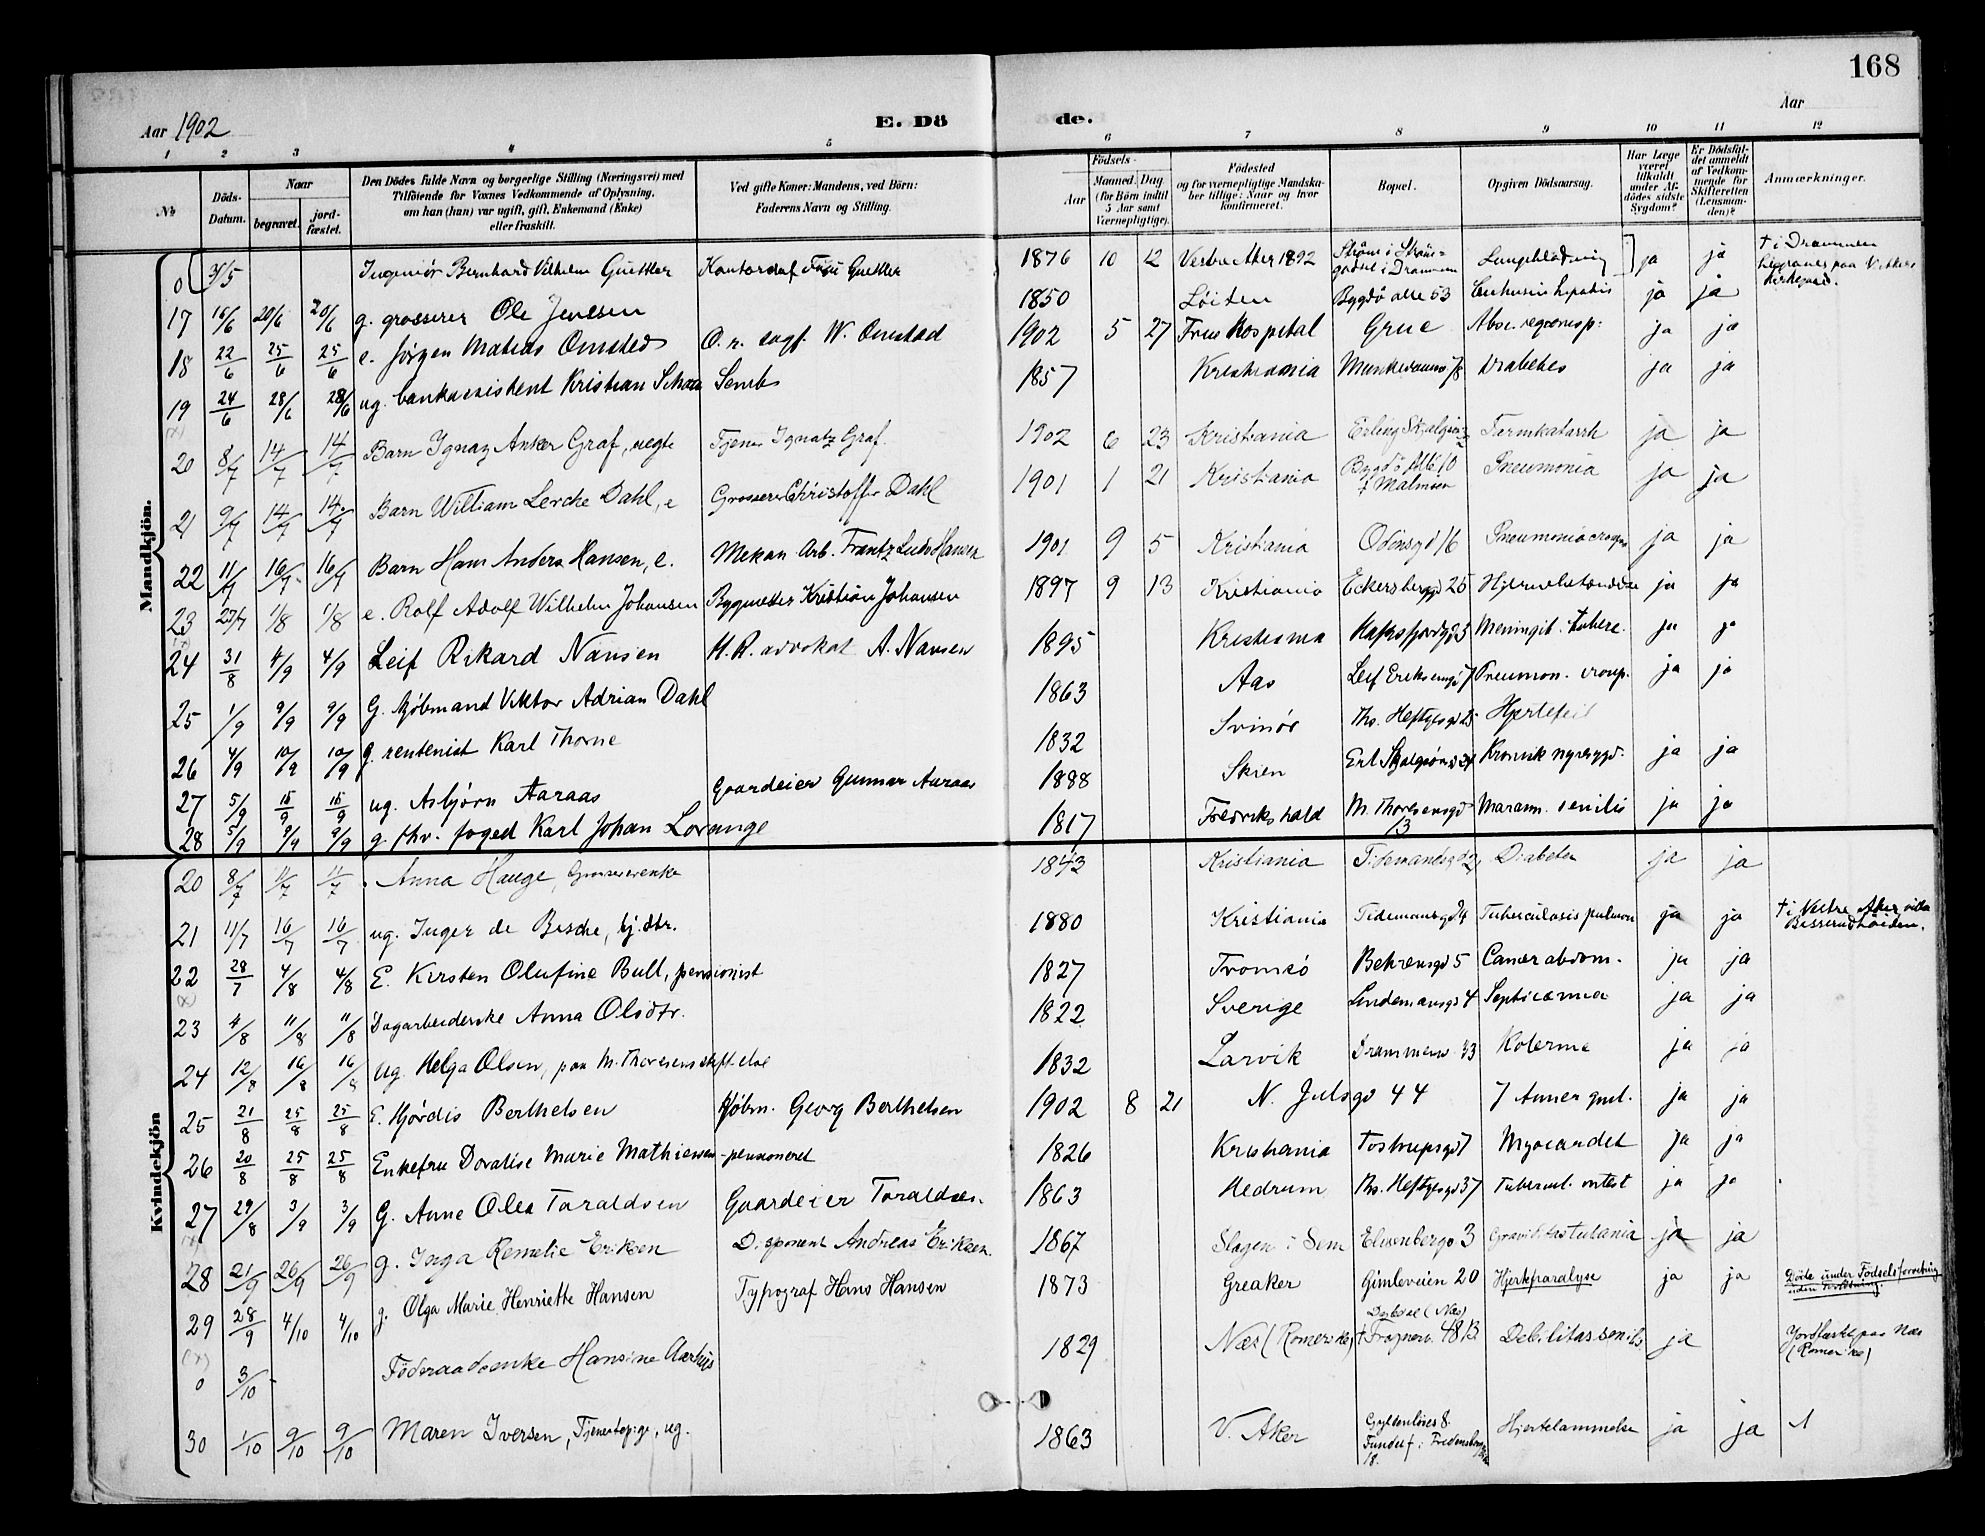 168
Aar 1902
E. Dö
de.
Aar
1 2 3 4 5 6 7 8 9 10 11 12
№
Döds-Datum.
Naar
begravet.
jord-fæstet.
Den Dödes fulde Navn og borgerlige Stilling (Næringsvei) med
Tilföiende for Voxnes Vedkommende af Oplysning,
om han (hun) var ugift, gift, Enkemand (Enke)
eller fraskilt.
Ved gifte Koner: Mandens, ved Börn:
Faderens Navn og Stilling.
Födsels-
Aar
Maaned. Dag
(for Börn indtil
5 Aar samt
Værnepligtige).
Födested
og for værnepligtige Mandska-
ber tillige: Naar og hvor
konfirmeret.
Bopæl.
Opgiven Dödsaarsag.
Har Læge
været
tilkaldt
under Af-
dödes sidste
Sygdom?
Er Dödsfal-
det anmeldt
af Vedkom-
mende for
Skifteretten
(Lensman-
den)?
Anmærkninger.
Mandkjön.
0 31/5 Ingeniör Bernhard Vilhelm 1876 10 12 Vestre Aker 1892 ja ja † i Drammen
17 16/6 20/6 20/6 g. grosserer Ole Jensen 1850 Löiten Bygdö alle 53 ja ja
18 22/6 25/6 25/6 e. Jörgen Matias Omsted O.r. sagf. W. Omstad 1902 5 27 Frues Hospital Grue ja ja
19 24/6 28/6 28/6 ug. bankassistent Kristian Semb 1857 Kristiania Diabetes ja ja
20 8/7 14/7 14/7 Barn Ignaz Anker Graf, ægte Tjener Ignatz Graf. 1902 6 23 Kristiania Tarmkatarrh ja ja
21 9/7 14/7 14/7 Barn William Lerche Dahl, e Grosserer Christoffer Dahl 1901 1 21 Kristiania Bygdö Allé 10 † Malmöen Pneumonia ja ja
22 11/7 16/7 16/7 Barn Hans Anders Hansen, e. Mekan. Arb. Frantz Ludv Hansen 1901 9 5 Kristiania Odinsgd 16 Pneumonia ja ja
23 27/7 1/8 1/8 e. Rolf Adolf Wilhelm Johansen Bygmester Kristian Johansen 1897 9 13 Kristiania Eckersbergsgd 25 ja ja
24 31/8 4/9 4/9 Leif Rikard Nansen H.R. advokat A. Nansen 1895 Kristiania Meningit. tuberc. ja ja
25 1/9 9/9 9/9 G. Kjöbmand Viktor Adrian Dahl 1863 Aas Leif Eriksensgd 7 Pneumon. croup. ja ja
26 4/9 10/9 10/9 g. rentenist Karl Thorne 1832 Svinör Ths. Heftyesgd 25 Hjertefeil
27 5/9 15/9 15/9 ug. Asbjörn Aaraas Gaardeier Gunnar Aaraas 1888 Skien Erl Skjalgsöns 24 Kronisk nyresygd. ja ja
28 5/9 9/9 9/9 g. fhv. foged Karl Johan Lorange 1817 Fredrikshald M. Thoresensgd 13 Marasm. senilis ja ja
Kvindekjön
20 8/7 11/7 11/7 Anna Hauge, Grosserer enke 1843 Kristiania Tidemandsgd Diabetes ja ja
21 11/7 16/7 16/7 ug. Inger de Besche, hj. dtr. 1880 Kristiania Tidemansgd 4 Tuberculosis pulmon ja ja † i Vestre Aker, villa Besserudhöiden.
22 28/7 4/8 4/8 E. Kirsten Olufine Bull, pensionist 1827 Tromsö Behrensgd 5 Cancer abdom. ja ja
23 4/8 11/8 11/8 Dagarbeiderske Anna Olsdtr. 1822 Sverige Lindemansgd 4 Septicæmia ja ja
24 12/8 16/8 16/8 ug. Helga Olsen, paa M. Thoresens stiftelse 1832 Larvik Drammensv 33 Kolerine ja ja
25 21/8 25/8 25/8 E. Hjördis Berthelsen Kjöbm. Georg Berthelsen 1902 8 21 N. Julsgd 44 ja ja
26 20/8 25/8 25/8 Enkefru Doratise Marie Mathiessen - pensioneret 1826 Kristiania Tostrupsgd 7 Myocardit ja ja
27 29/8 3/9 3/9 G. Anne Olea Taraldsen Gaardeier Taraldsen 1863 Hedrum Ths. Heftyesgd 37 Tubercul. intest ja ja
28 21/9 26/9 26/9 g. Inga Remelie Eriksen Disponent Andreas Eriksen. 1867 Slagen i Sem Elisenbergv 3 ja ja
29 28/9 4/10 4/10 g. Olga Marie Henriette Hansen Typograf Hans Hansen 1873 Greaker Gimleveien 20 Hjerteparalyse ja ja Döde under Födselsforretning
0 3/10 Föderaadsenke Hansine Aarhus 1829 Næs (Romerike) † Frognerv. 48 B. Debilitas senilis ja Jordfæstet paa Næs (Romerike)
30 1/10 9/10 9/10 Maren Iversen, Tjenestepige, ug. 1863 V. Aker Gyldenlöves 8. Hjertelammelse ja ja